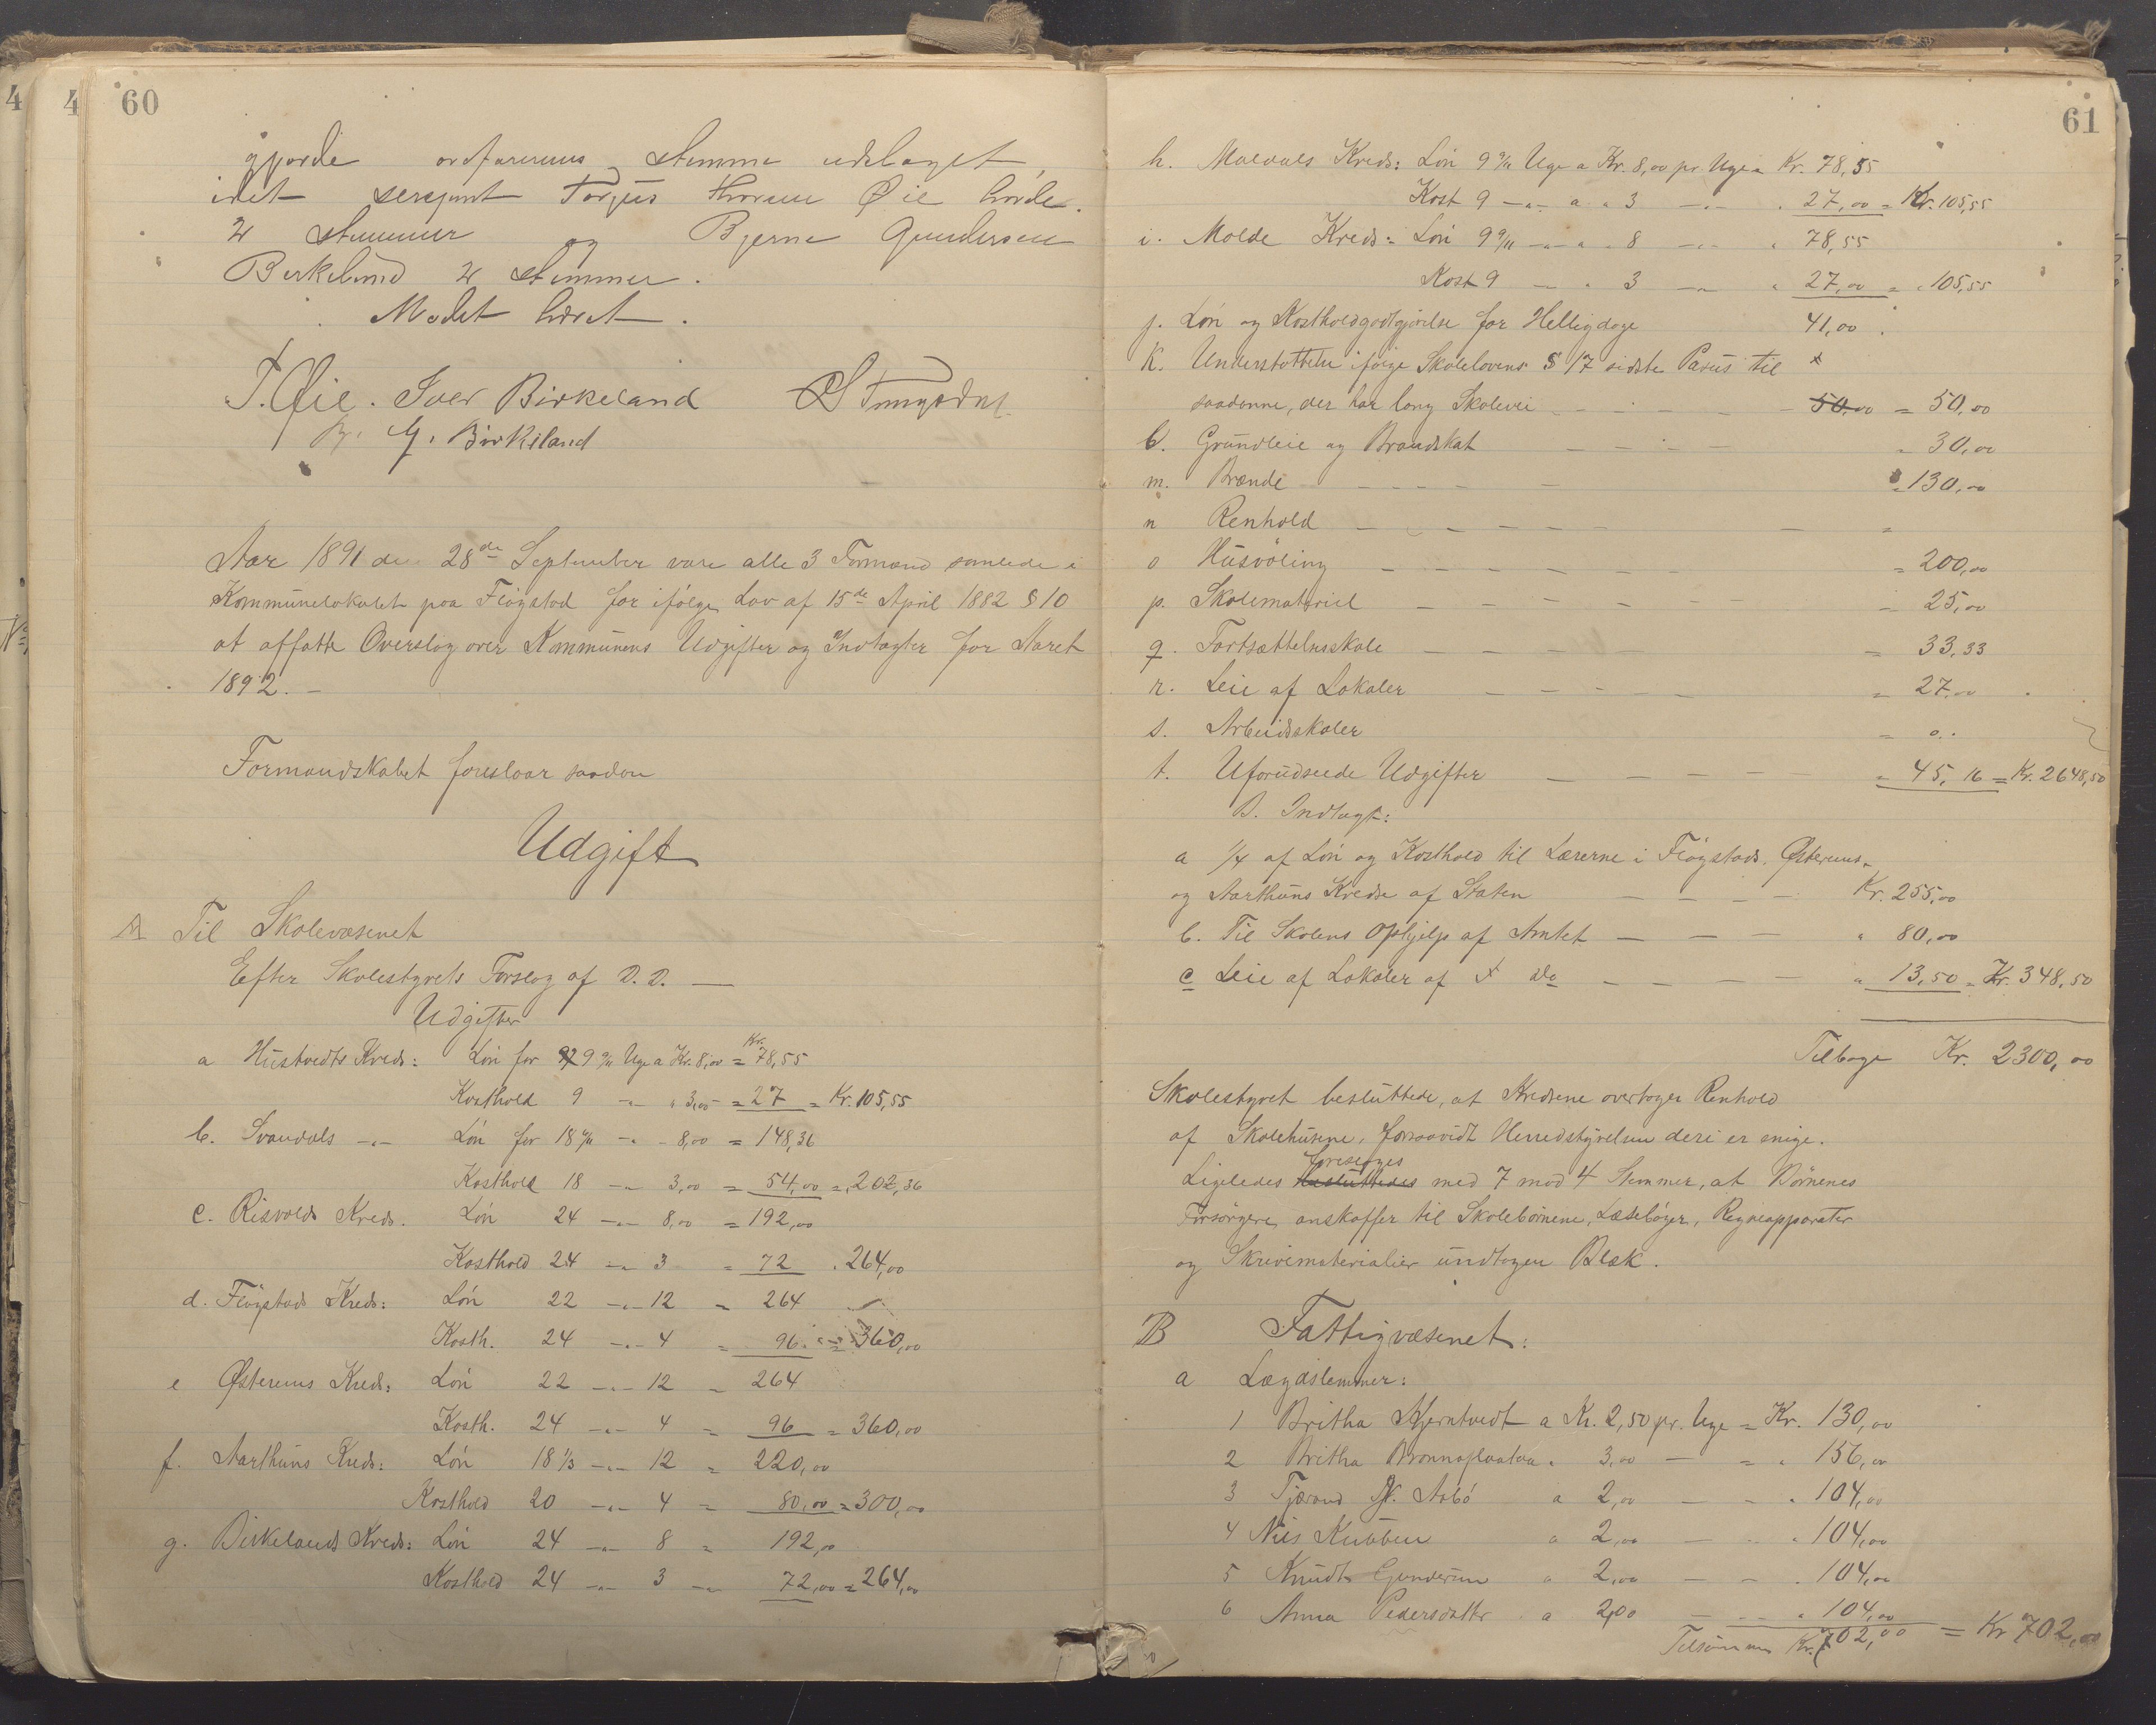 60
gjorde ordførerens stemme udslaget,
idet sersjant Torjus Øie havde
4 stemmer og Bjerne Gundersen
Birkeland 4 stemmer.
Mødet hævet.
T. Øie. Iver Birkeland
B. G. Birkeland
Aar 1891 den 28de September vare alle 3 Formænd samlede i
Kommunelokalet paa Fløgstad for ifølge Lov af 15de April 1882 § 10
at affatte Overslag over Kommunens Udgifter og Indtægter for Aaret
1892. —
Formandskabet foreslaar saadan
Udgift
A Til Skolevæsenet
Efter Skolestyrets Forslag af D. D. —
Udgifter
a Hustvedts Kreds: Løn for 9 9/11 Uge a Kr. 8,00 = Kr. 78,55
Kosthold 9 -„- „ 3,00 = 27 = Kr. 105,55
b. Svandals -„- Løn for 18 6/11 -„- 8,00 = 148,36
Kosthold 18 -„- 3,00 = 54,00 = „ 202,36
c. Risvolds Kreds. Løn 24 -„- 8,00 = 192,00
Kosthold 24 -„- 3 = 72 „ 264,00
d. Fløgstads Kreds: Løn 22 -„- 12 = 264
Kosth. 24 -„- 4 = 96 „ = 360,00
e Østerums Kreds: Løn 22 -„- 12 = 264
Kosth. 24 -„- 4 = 96 = 360,00
f. Aarthuns Kreds: Løn 18 1/3 -„- 12 = 220,00
Kosthold 20 -„- 4 = 80,00 = 300,00
g. Birkelands Kreds: Løn 24 -„- 8 = 192,00
Kosthold 24 -„- 3 -„- 72,00 = 264,00
61
h. Maldals Kreds: Løn 9 9/11 Uge a Kr. 8,00 pr Uge = Kr. 78,55
Kost 9 -„- a „ 3 -„- „ 27,00 = Kr. 105,55
i. Molde Kreds: Løn 9 9/11 -„- a „ 8 -„- „ 78,55
Kost 9 -„- „ 3 -„- „ 27,00 = „ 105,55
j. Løn og Kostholdgodtgjørelse for Helligdage 41,00
K. Understøttelse ifølge Skolelovens § 17 sidste Passus til
saadanne, der har lang Skolevei - - - - 50,00 = 50,00
l. Grundleie og Brandskat - - - „ 30,00
m. Brænde - - - - - „ 130,00
n Renhold - - - - - - - „
o Husvøling - - - - - - = 200,00
p. Skolemateriel - - - - - = 25,00
q. Fortsættelsesskole - - - - - = 33,33
r. Leie af Lokaler - - - - = 27,00
s. Arbeidsskoler = 0.
t. Uforudseede Udgifter - - - - „ 45,16 = Kr. 2648,50
B. Indtægt:
a 1/4 af Løn og Kosthold til Lærerne i Fløgstads, Østerums-
og Aarthuns Kredse af Staten - - - - Kr. 255,00
b. Til Skolens Ophjelp af Amtet - - - „ 80,00
c Leie af Lokaler af Do - - - - „ 13,50 = Kr. 348,50
Tilbage Kr. 2300,00
Skolestyret besluttede, at Kredsene overtager Renhold
af Skolehusene, forsaavidt Herredstyrelsen deri er enige.
foreslaaes
Ligeledes besluttedes med 7 mod 4 Stemmer, at Børnenes
Forsørgere anskaffer til Skolebørnene, Læsebøger, Regneapparater
og Skrivematerialier undtagen Blæk.
B Fattigvæsenet:
a Lægdslemmer:
1 Britha Kjerntvedt a Kr. 2,50 pr. Uge = Kr. 130,00
2 Britha „ 3,00 - = „ 156,00
3 Tjærand Aabø a 2,00 - - „ 104,00
4 Nils Kubben a 2,00 - - „ 104,00
5 Knudt Gundersen a 2,00 - - „ 104,00
6 Anna Pedersdatter a 2,00 - - „ 104,00
Tilsammen Kr. 702,00 = Kr 702,00